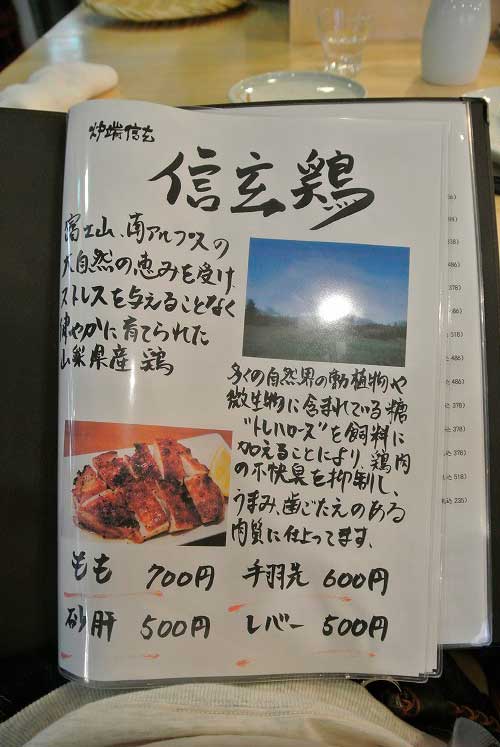 炉端信玄
信玄鶏
富士山、南アルプスの
大自然の恵みを受け
ストレスを与えることなく
健やかに育てられた
山梨県産鶏
多くの自然界の動植物や
微生物に含まれている糖
"トレハロース"を飼料に
加えることにより、鶏肉
の不快臭を抑制し、
うまみ、歯ごたえのある
肉質に仕上ってます、
もも 700円 手羽先 600円
砂肝 500円 レバー 500円
378)
486)
378)
518)
486)
486)
378)
378)
518)
235)